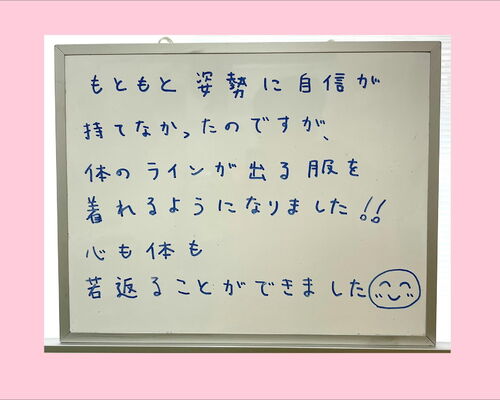 もともと姿勢に自信が
持てなかったのですが、
体のラインが出る服を
着れるようになりました!!
心も体も
若返ることができました